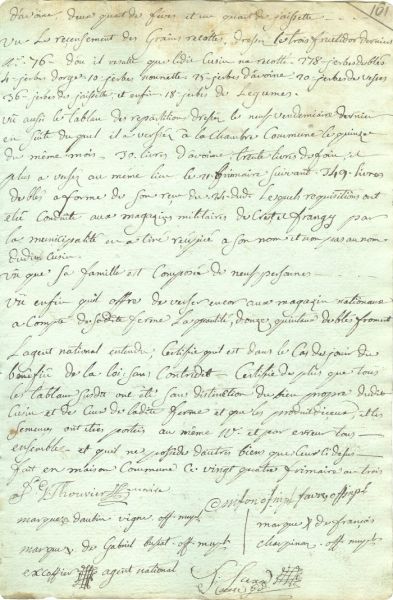 101
d'avoine, deux quart de feves et un quart de jaissette
Vu Le recensement des Grains recoltés, dressé le trois fructidor dernier
N.º 76 dou il resulte que ledit Curin na recolté 778 jerbes de bles
4 jerbes dorge 10 jerbes 75 jerbes d'avoine 20 jerbes de vesses
36 jerbes de jaissette et enfin 18 jerbes de Legumes.
Vu aussi le tableau de repartition dressé le neuf vendemiaire dernier
en suite du quel il a versé a la Chambre Commune le quinze
du meme mois 30 livres d'avoine trente livres de foin, et
plus a versé au meme lieu le 21 frimaire suivant 349 livres
de bles a forme de son recu du dit. Lesquels requisitions ont
eté Conduite aux magazins militaires de Crest et frangy par
la municipalité en a tiré recepissé a son nom et non pas au nom
dudit Curin
Vu que sa famille est Composée de neuf personnes
Vu enfin qu'il offre de verser encor aux magazin nationaux
a Compte de sadite ferme La quantité, douze quintaux de bles froment
Lagent national entendu, Certifie qu'il est dans le Cas de jouir du
benefice de la loi sans Contredit Certifie de plus que tous
les tableaux susdits ont été sans distinction du bien propre dudit
Curin et de Ceux de ladite ferme et que les produit diceux, et les
semences ont etées portées au meme N.º et par erreur tous
ensemble et qu'il ne possede d'autres biens que Ceux ci dessus
fait en maison Commune Ce vingt quatre frimaire an trois
Thouvier
off mpl favre off mpl
marque d'autin vigne off mupl
marque X de françois
marque X de Gabriel off mupl
Charpinaz off mupl
excoffier agent national